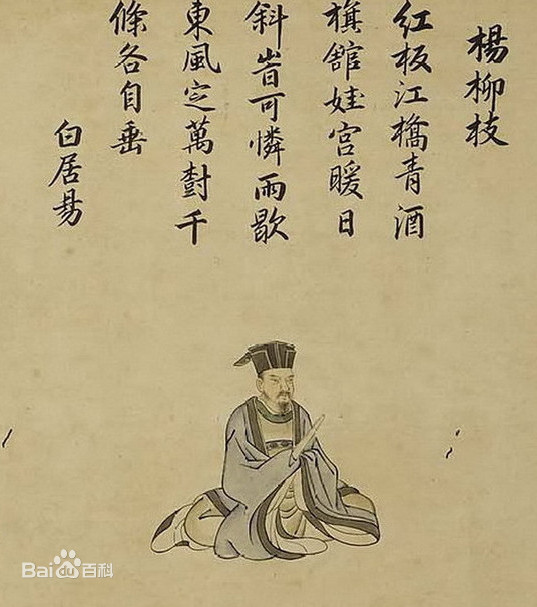 楊柳枝
紅板江橋青酒
旗舘娃宮暖日
斜旹可憐雨歇
東風定萬樹千
條各自垂
白居易
Bai du 百科